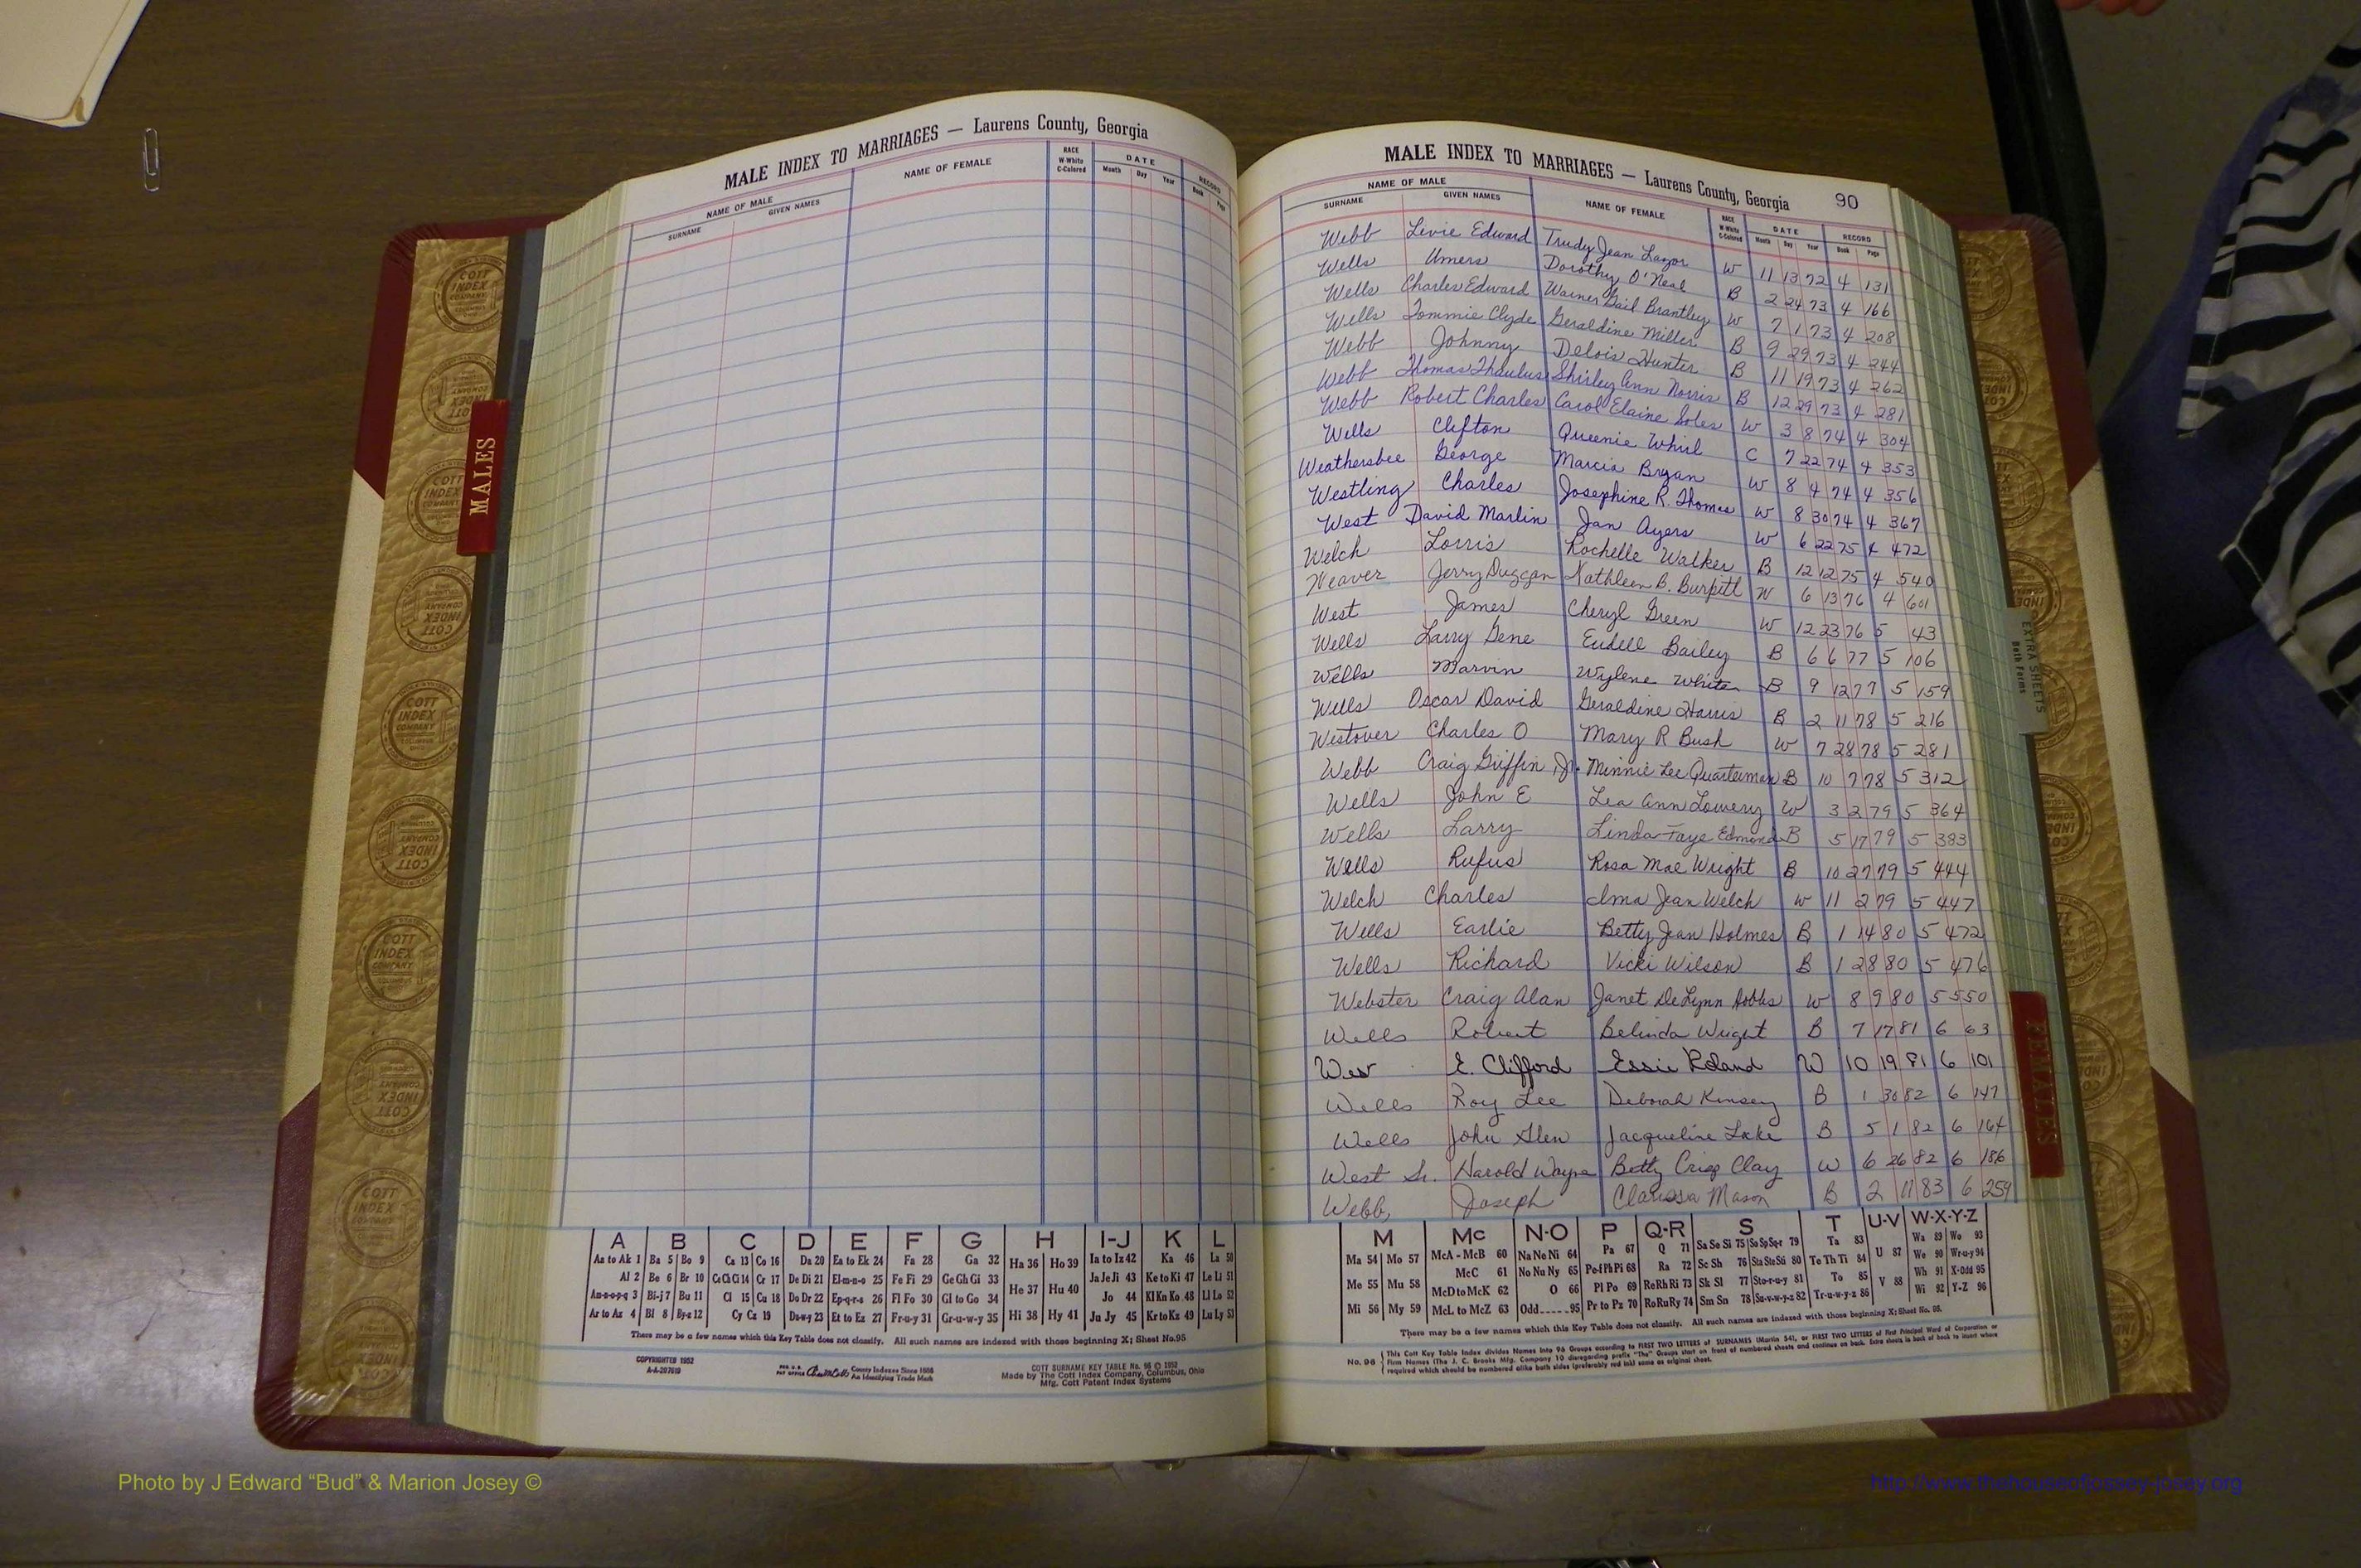 MALE INDEX TO MARRIAGES — Laurens County, Georgia
NAME OF MALE
SURNAME GIVEN NAMES NAME OF FEMALE RACE W-White C-Colored DATE Month Day Year RECORD Book Page
MALES
A B C D E F G H I-J K L
Aa to Ak 1 Ba 5 Bo 9 Ca 13 Co 16 Da 20 Ea to Ek 24 Fa 28 Ga 32 Ha 36 Ho 39 Ia to Iz 42 Ka 46 La 50
Al 2 Be 6 Br 10 Ce Ch Ci 14 Cr 17 De Di 21 El-m-n-o 25 Fe Fi 29 Ge Gh Gi 33 He 37 Hu 40 Ja Je Ji 43 Ke to Ki 47 Le Li 51
An-n-o-p-q 3 Bi-j 7 Bu 11 Cl 15 Cu 18 Do Dr 22 Ep-q-r-s 26 Fl Fo 30 Gl to Go 34 Jo 44 Kl Kn Ko 48 Ll Lo 52
Ar to Az 4 Bl 8 By-z 12 Cy Cz 19 Du-w-y 23 Et to Ez 27 Fr-u-y 31 Gr-u-w-y 35 Hi 38 Hy 41 Ju Jy 45 Kr to Kz 49 Lu Ly 53
There may be a few names which this Key Table does not classify. All such names are indexed with those beginning X; Sheet No. 95
COPYRIGHTED 1952
County Indexes Since 1888
An Identifying Trade Mark
COTT SURNAME KEY TABLE No. 96 © 1952
Made by The Cott Index Company, Columbus, Ohio
Mfg. Cott Patent Index Systems
MALE INDEX TO MARRIAGES — Laurens County, Georgia 90
NAME OF MALE
SURNAME GIVEN NAMES NAME OF FEMALE RACE W-White C-Colored DATE Month Day Year RECORD Book Page
Webb Levie Edward Trudy Jean Lazor W 11 13 72 4 131
Wells Umers Dorothy O'Neal B 2 24 73 4 166
Wells Charles Edward Warner Gail Brantley W 7 1 73 4 208
Wells Tommie Clyde Geraldine Miller B 9 29 73 4 244
Webb Johnny Delois Hunter B 11 19 73 4 262
Webb Thomas Shirley Ann Norris B 12 29 73 4 281
Webb Robert Charles Carol Elaine Soles W 3 8 74 4 304
Wells Clefton Queenie Whirl C 7 22 74 4 353
Weathersbee George Marcia Bryan W 8 4 74 4 356
Westling Charles Josephine R. Thomas W 8 30 74 4 367
West David Marlin Jan Ayers W 6 22 75 4 472
Welch Lorris Rochelle Walker B 12 12 75 4 540
Weaver Jerry Duggan Kathleen B. Burpitt W 6 13 76 4 601
West James Cheryl Green W 12 23 76 5 43
Wells Larry Gene Eudell Bailey B 6 6 77 5 106
Wells Marvin Wylene White B 9 12 77 5 159
Wells Oscar David Geraldine Harris B 2 11 78 5 216
Westover Charles O Mary R Bush W 7 28 78 5 281
Webb Craig Griffin Jr. Minnie Lee Quarterman B 10 7 78 5 312
Wells John E Lea Ann Lowery W 3 2 79 5 364
Wells Larry Linda Faye Edmond B 5 17 79 5 383
Wells Rufus Rosa Mae Wright B 10 27 79 5 444
Welch Charles Ilma Jean Welch W 11 2 79 5 447
Wells Earlie Betty Jean Holmes B 1 14 80 5 472
Wells Richard Vicki Wilson B 1 28 80 5 476
Webster Craig Alan Janet DeLynn Hobbs W 8 9 80 5 550
Wells Robert Belinda Wright B 7 17 81 6 63
West E. Clifford Essie Roland W 10 19 81 6 101
Wells Roy Lee Deborah Kinsey B 1 30 82 6 147
Wells John Glen Jacqueline Lake B 5 1 82 6 164
West Sr. Harold Wayne Betty Crisp Clay W 6 26 82 6 186
Webb, Joseph Clarissa Mason B 2 11 83 6 259
M Mc N-O P Q-R S T U-V W-X-Y-Z
Ma 54 Mo 57 McA - McB 60 Na Ne Ni 64 Pa 67 Q 71 Sa Se Si 75 So Sp Sq-r 79 Ta 83 U 87 Wa 89 Wo 93
Me 55 Mu 58 McC 61 No Nu Ny 65 Pe-f Ph Pi 68 Ra 72 Sc Sh 76 Sta Ste Sti 80 Te Th Ti 84 V 88 We 90 Wr-u-y 94
McD to McK 62 O 66 Pl Po 69 Re Rh Ri 73 Sk Sl 77 Sto-r-u-y 81 To 85 Wh 91 X-Odd 95
Mi 56 My 59 McL to McZ 63 Odd 95 Pr to Pz 70 Ro Ru Ry 74 Sm Sn 78 Su-v-w-y-z 82 Tr-u-w-y-z 86 Wi 92 Y-Z 96
There may be a few names which this Key Table does not classify. All such names are indexed with those beginning X; Sheet No. 95.
No. 96 This Cott Key Table Index divides Names into 96 Groups according to FIRST TWO LETTERS of SURNAMES (Martin 54), or FIRST TWO LETTERS of First Principal Word of Corporation or
Firm Names (The J. C. Brooks Mfg. Company 10 disregarding prefix "The" Groups start on front of numbered sheets and continue on back. Extra sheets in back of book to insert where
required which should be numbered alike both sides (preferably red ink) same as original sheet.
EXTRA SHEETS
Both Forms
FEMALES
COTT INDEX COMPANY COLUMBUS OHIO
Photo by J Edward “Bud” & Marion Josey ©
http://www.thehouseofjossey-josey.org